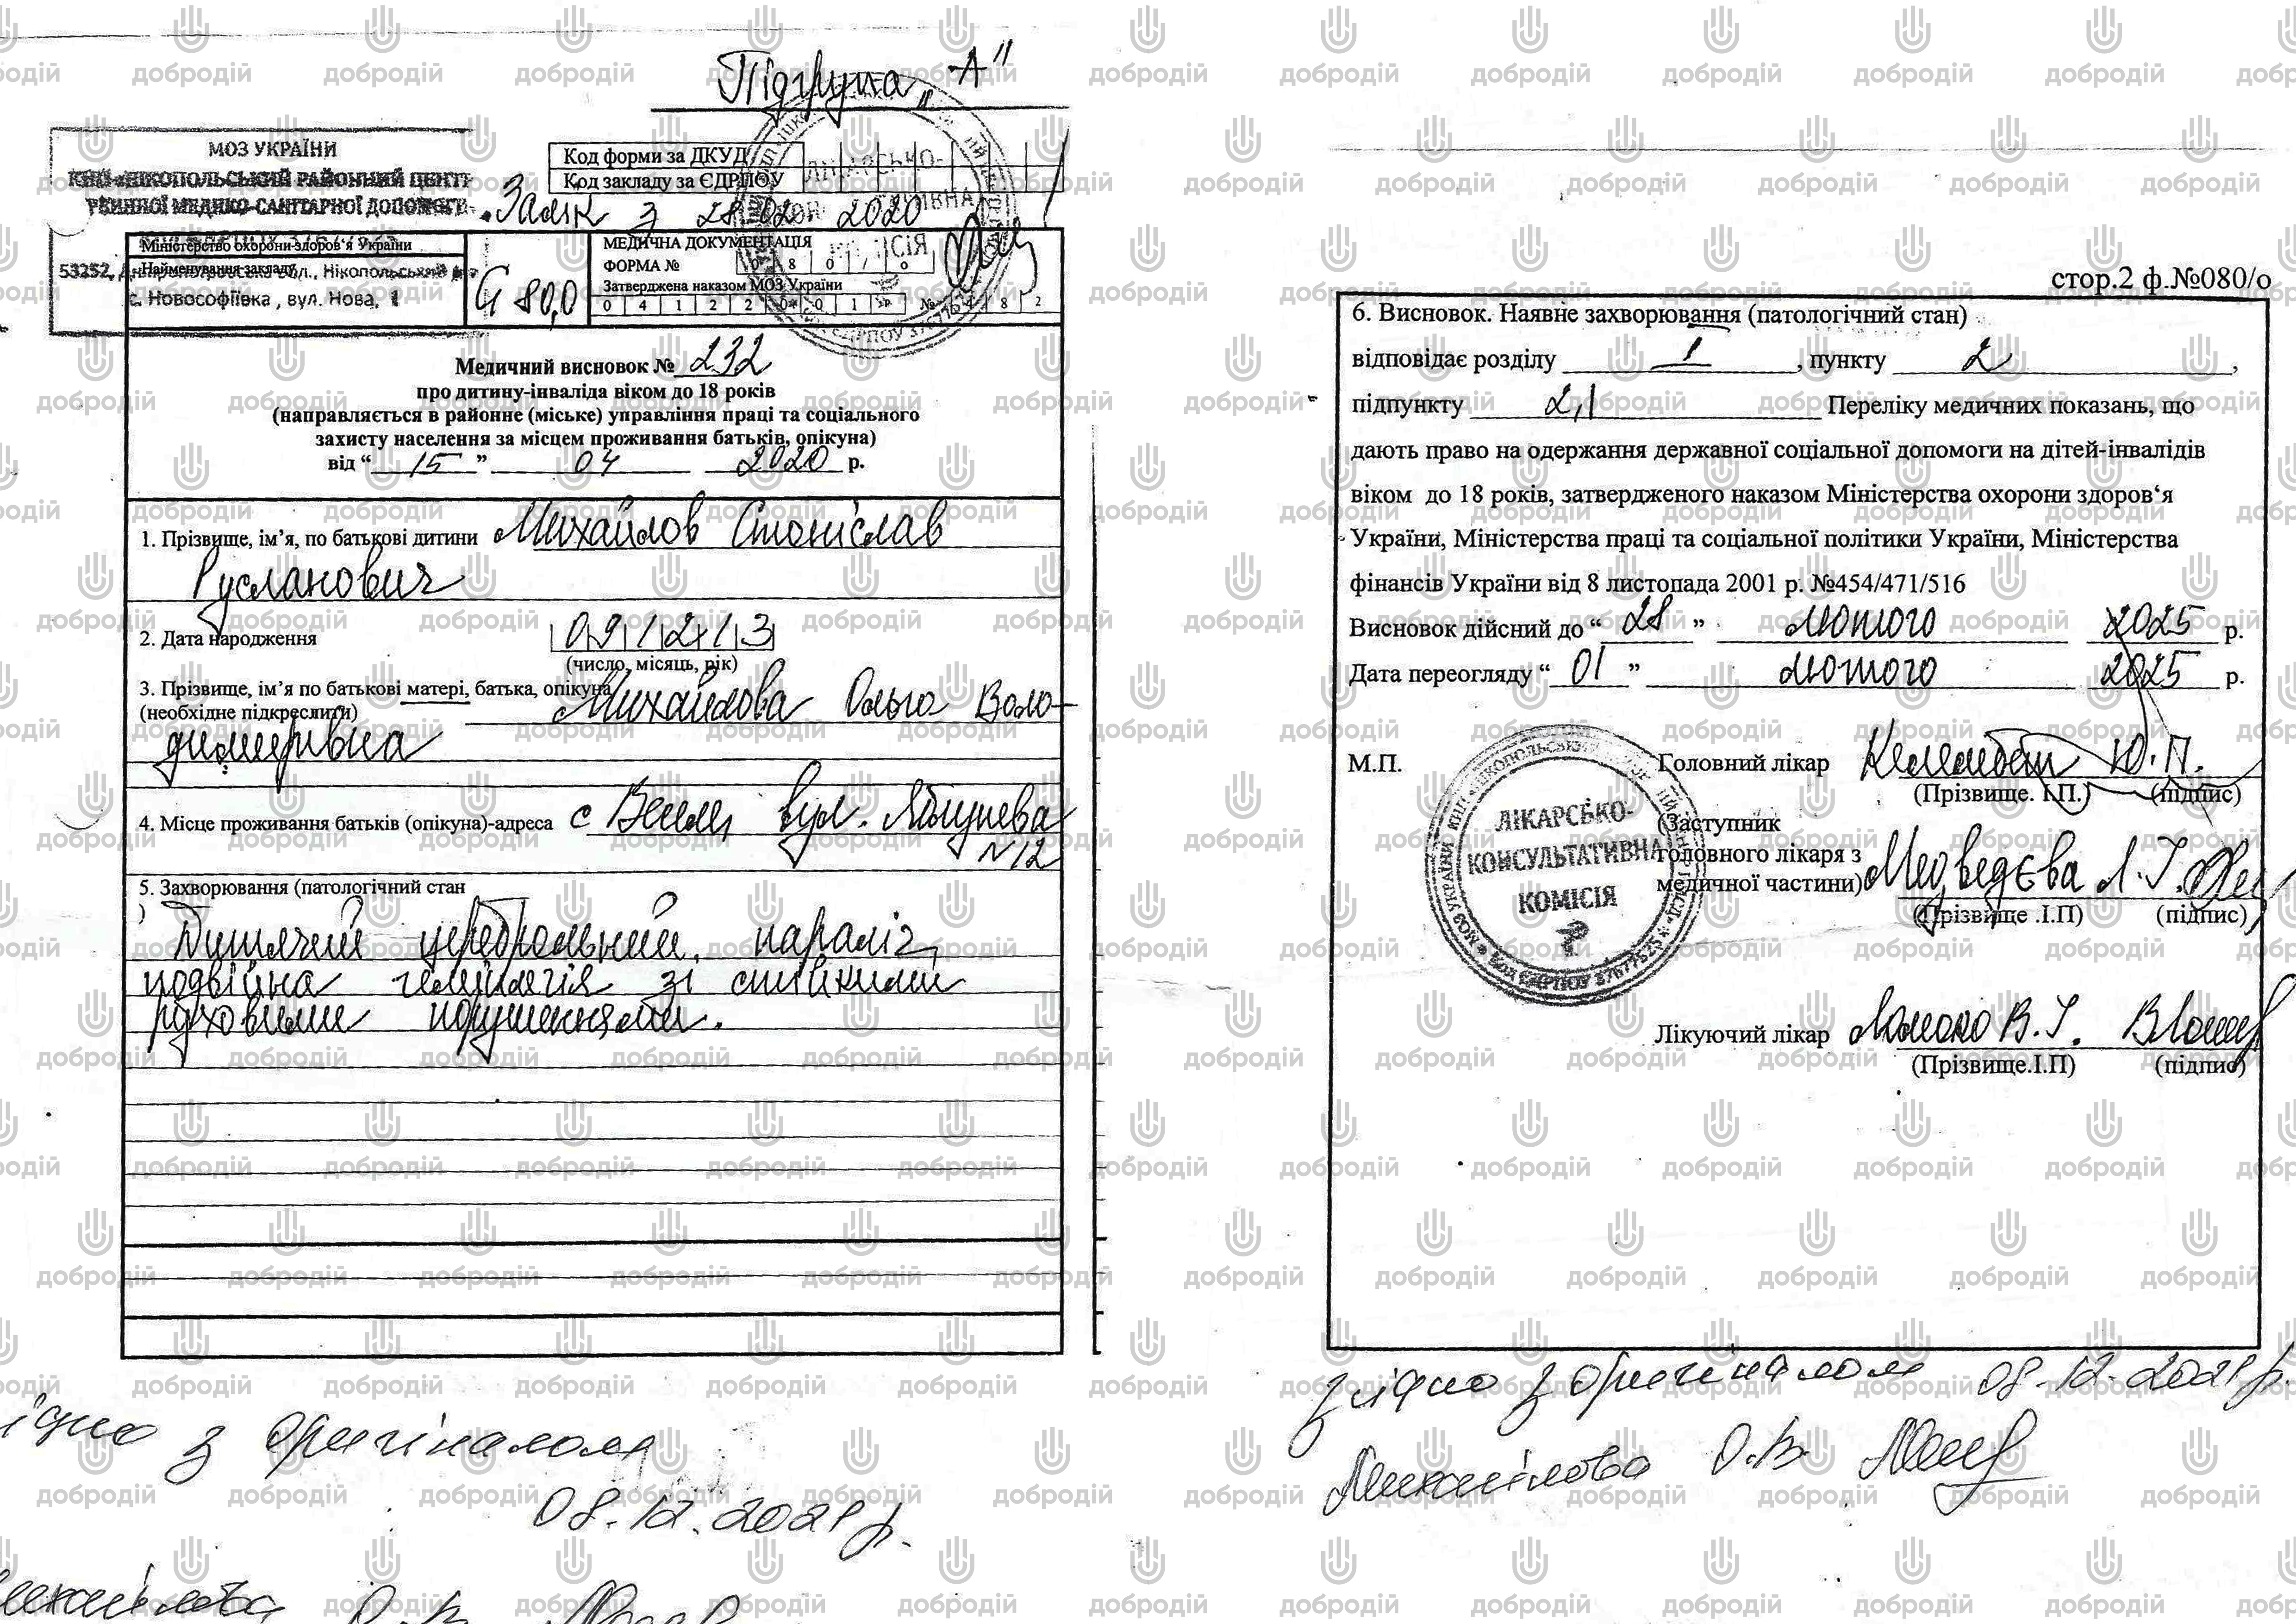 Підгрупа „А"
МОЗ УКРАЇНИ
КНП «НІКОПОЛЬСЬКИЙ РАЙОННИЙ ЦЕНТР
МЕДИКО-САНІТАРНОЇ ДОПОМОГИ
53252, Дніпропетровська обл., Нікопольський
с. Новософіївка , вул. Нова, 1
Код форми за ДКУД
Код закладу за ЄДРПОУ
з 28 02 2020
Міністерство охорони здоров'я України
Найменування закладу
G 80,0
МЕДИЧНА ДОКУМЕНТАЦІЯ
ФОРМА № 0 8 0 / о
Затверджена наказом МОЗ України
0 4 1 2 2 0 0 1 р № 4 8 2
Медичний висновок № 232
про дитину-інваліда віком до 18 років
(направляється в районне (міське) управління праці та соціального
захисту населення за місцем проживання батьків, опікуна)
від “ 15 ” 04 2020 р.
1. Прізвище, ім’я, по батькові дитини Михайлов Станіслав
Русланович
2. Дата народження 091213
(число, місяць, рік)
3. Прізвище, ім’я по батькові матері, батька, опікуна Михайлова Ольга Воло-
(необхідне підкреслити)
димирівна
4. Місце проживання батьків (опікуна)-адреса с вул.
№12
5. Захворювання (патологічний стан
Дитячий церебральний параліч,
подвійна геміплегія зі стійкими
руховими порушеннями.
ідно з оригіналом
08.12.2021р.
О.В
стор.2 ф.№080/о
6. Висновок. Наявне захворювання (патологічний стан)
відповідає розділу 1 , пункту 2 ,
підпункту 2,1 Переліку медичних показань, що
дають право на одержання державної соціальної допомоги на дітей-інвалідів
віком до 18 років, затвердженого наказом Міністерства охорони здоров‘я
України, Міністерства праці та соціальної політики України, Міністерства
фінансів України від 8 листопада 2001 р. №454/471/516
Висновок дійсний до “ 28 ” лютого 2025 р.
Дата переогляду “ 01 ” лютого 2025 р.
М.П.
ЛІКАРСЬКО-
КОНСУЛЬТАТИВНА
КОМІСІЯ
Головний лікар Ю.П.
(Прізвище. І.П.) (підпис)
(Заступник
головного лікаря з
медичної частини) Медведєва Л.І.
(Прізвище .І.П) (підпис)
Лікуючий лікар В.І.
(Прізвище.І.П) (підпис)
згідно з оригіналом 08.12.2021р.
Михайлова О.В
добродій